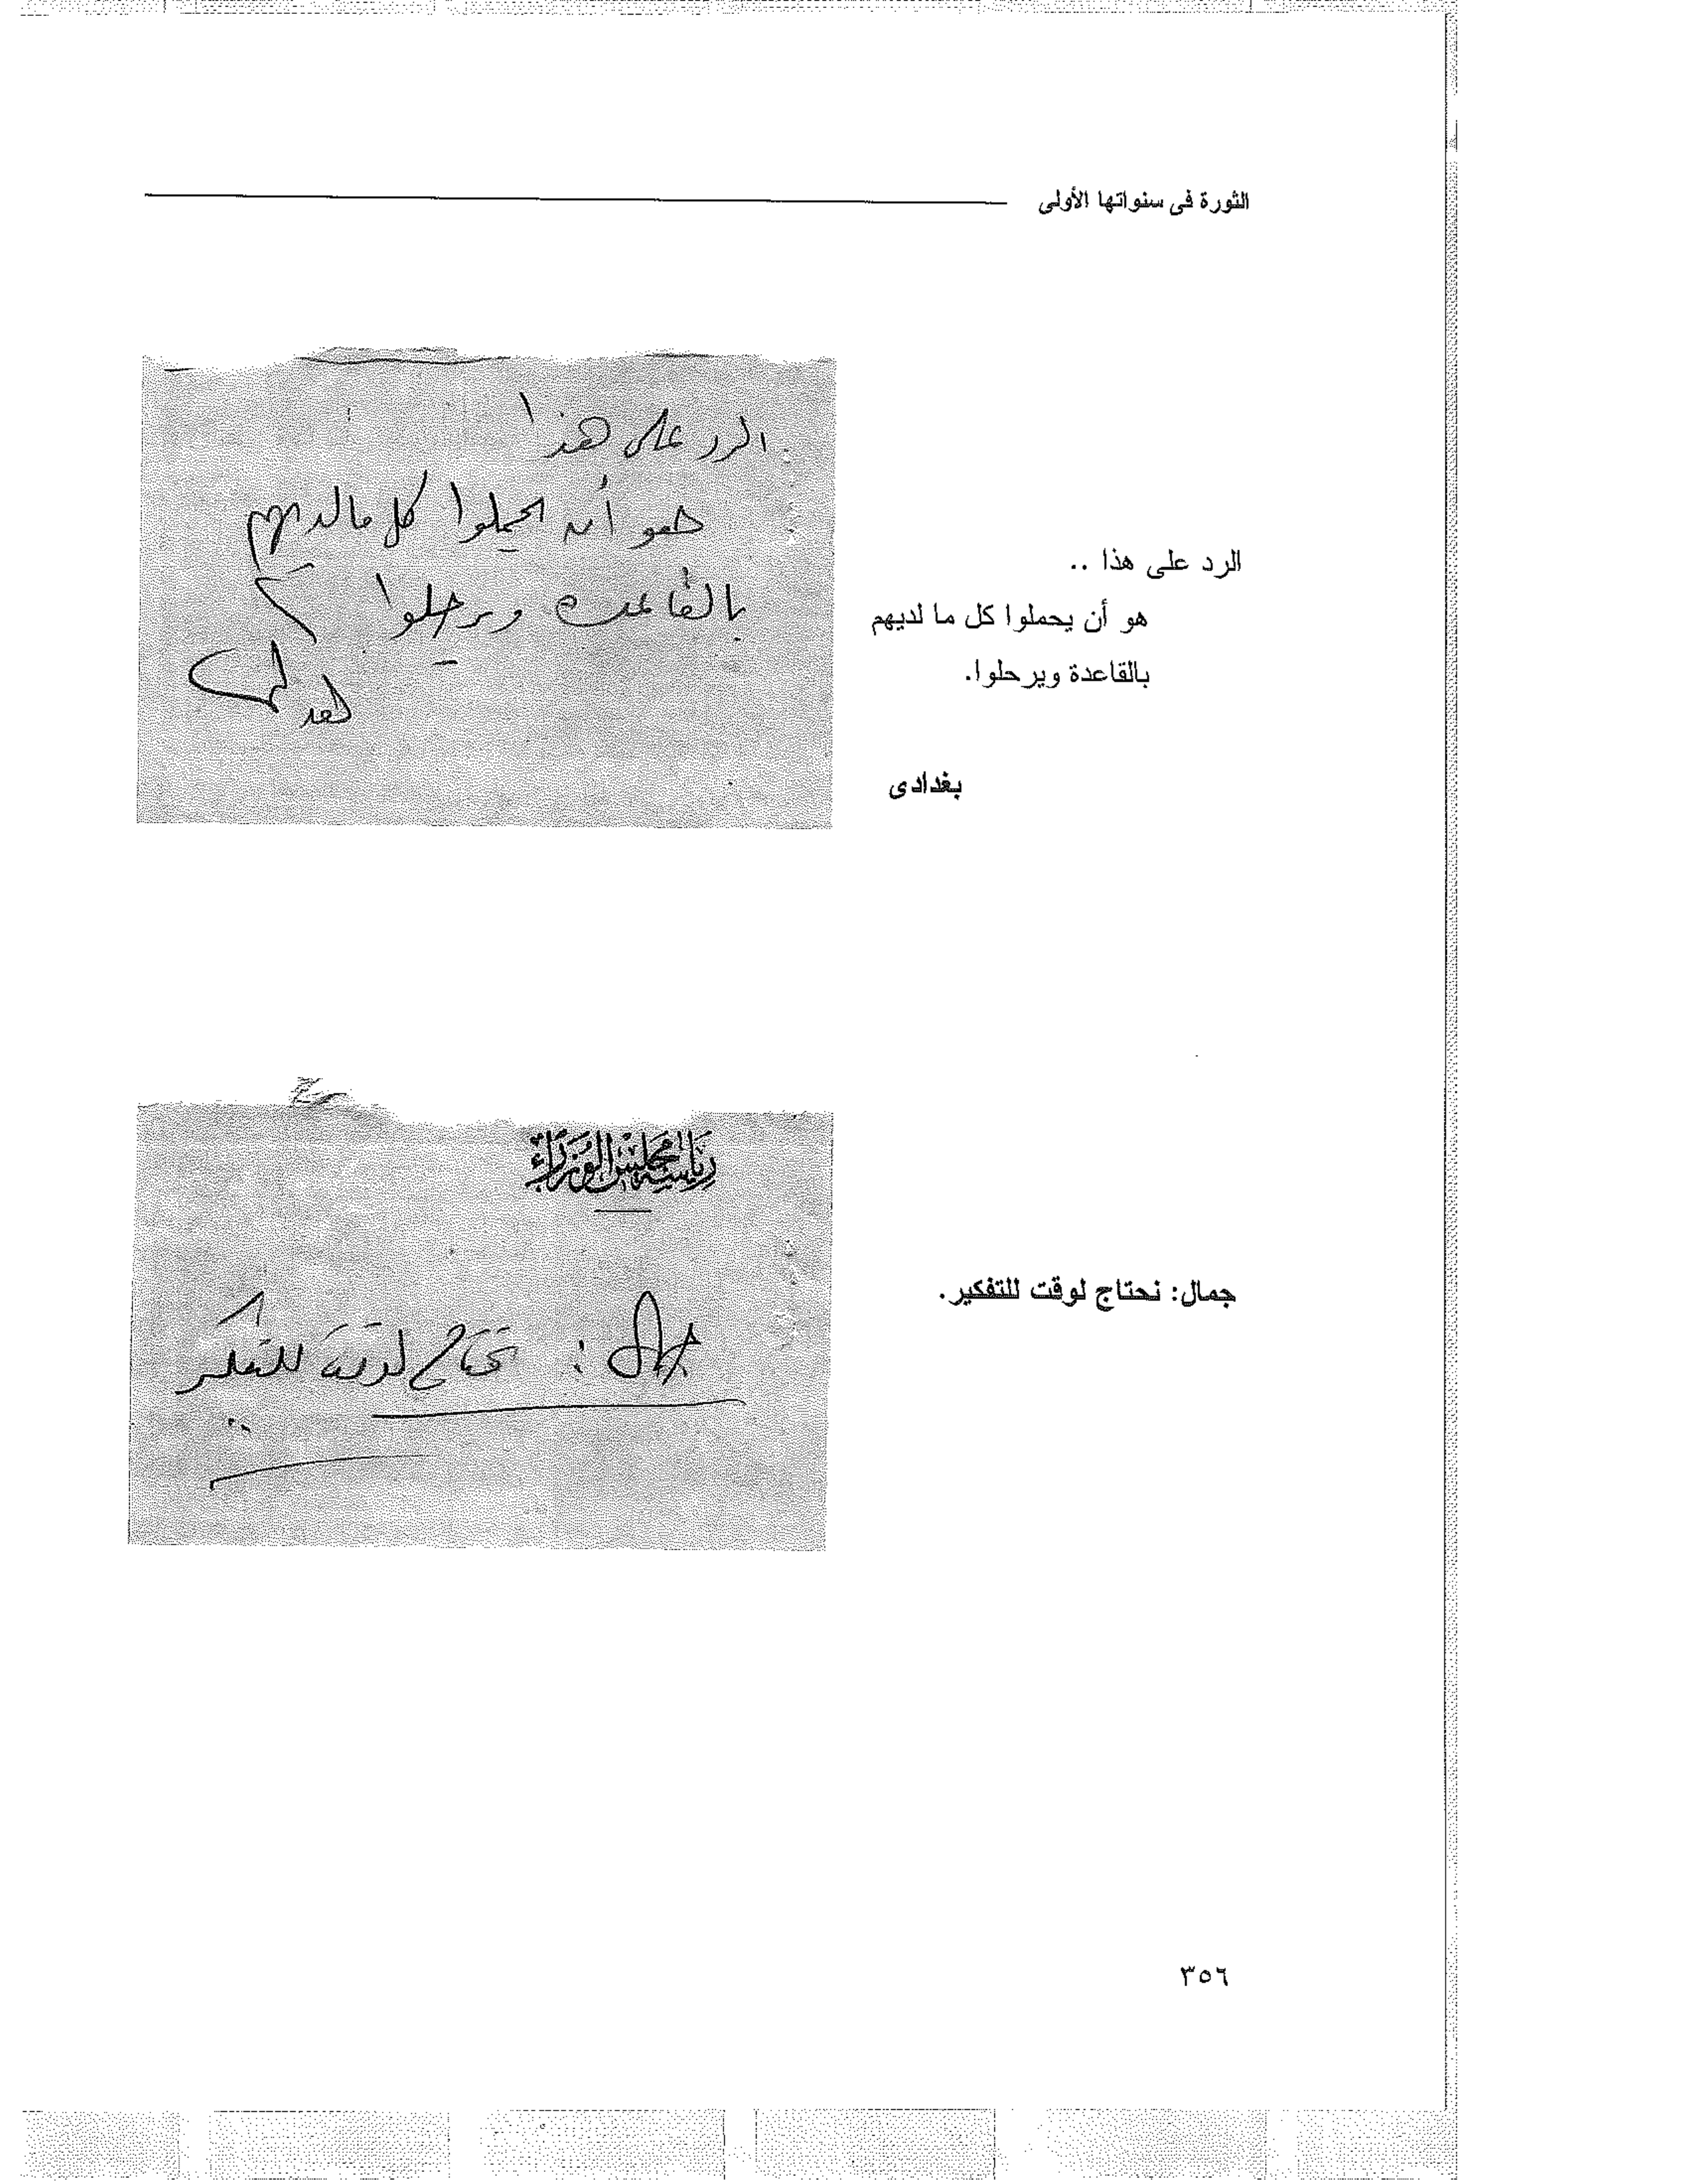 الثورة فى سنواتها الأولى
الرد على هذا
هو أن يحملوا كل ما لديهم
بالقاعدة ويرحلوا
الرد على هذا ..
هو أن يحملوا كل ما لديهم
بالقاعدة ويرحلوا.
بغدادى
رياسة مجلس الوزراء
جمال : نحتاج لوقت للتفكير
جمال: نحتاج لوقت للتفكير.
٣٥٦